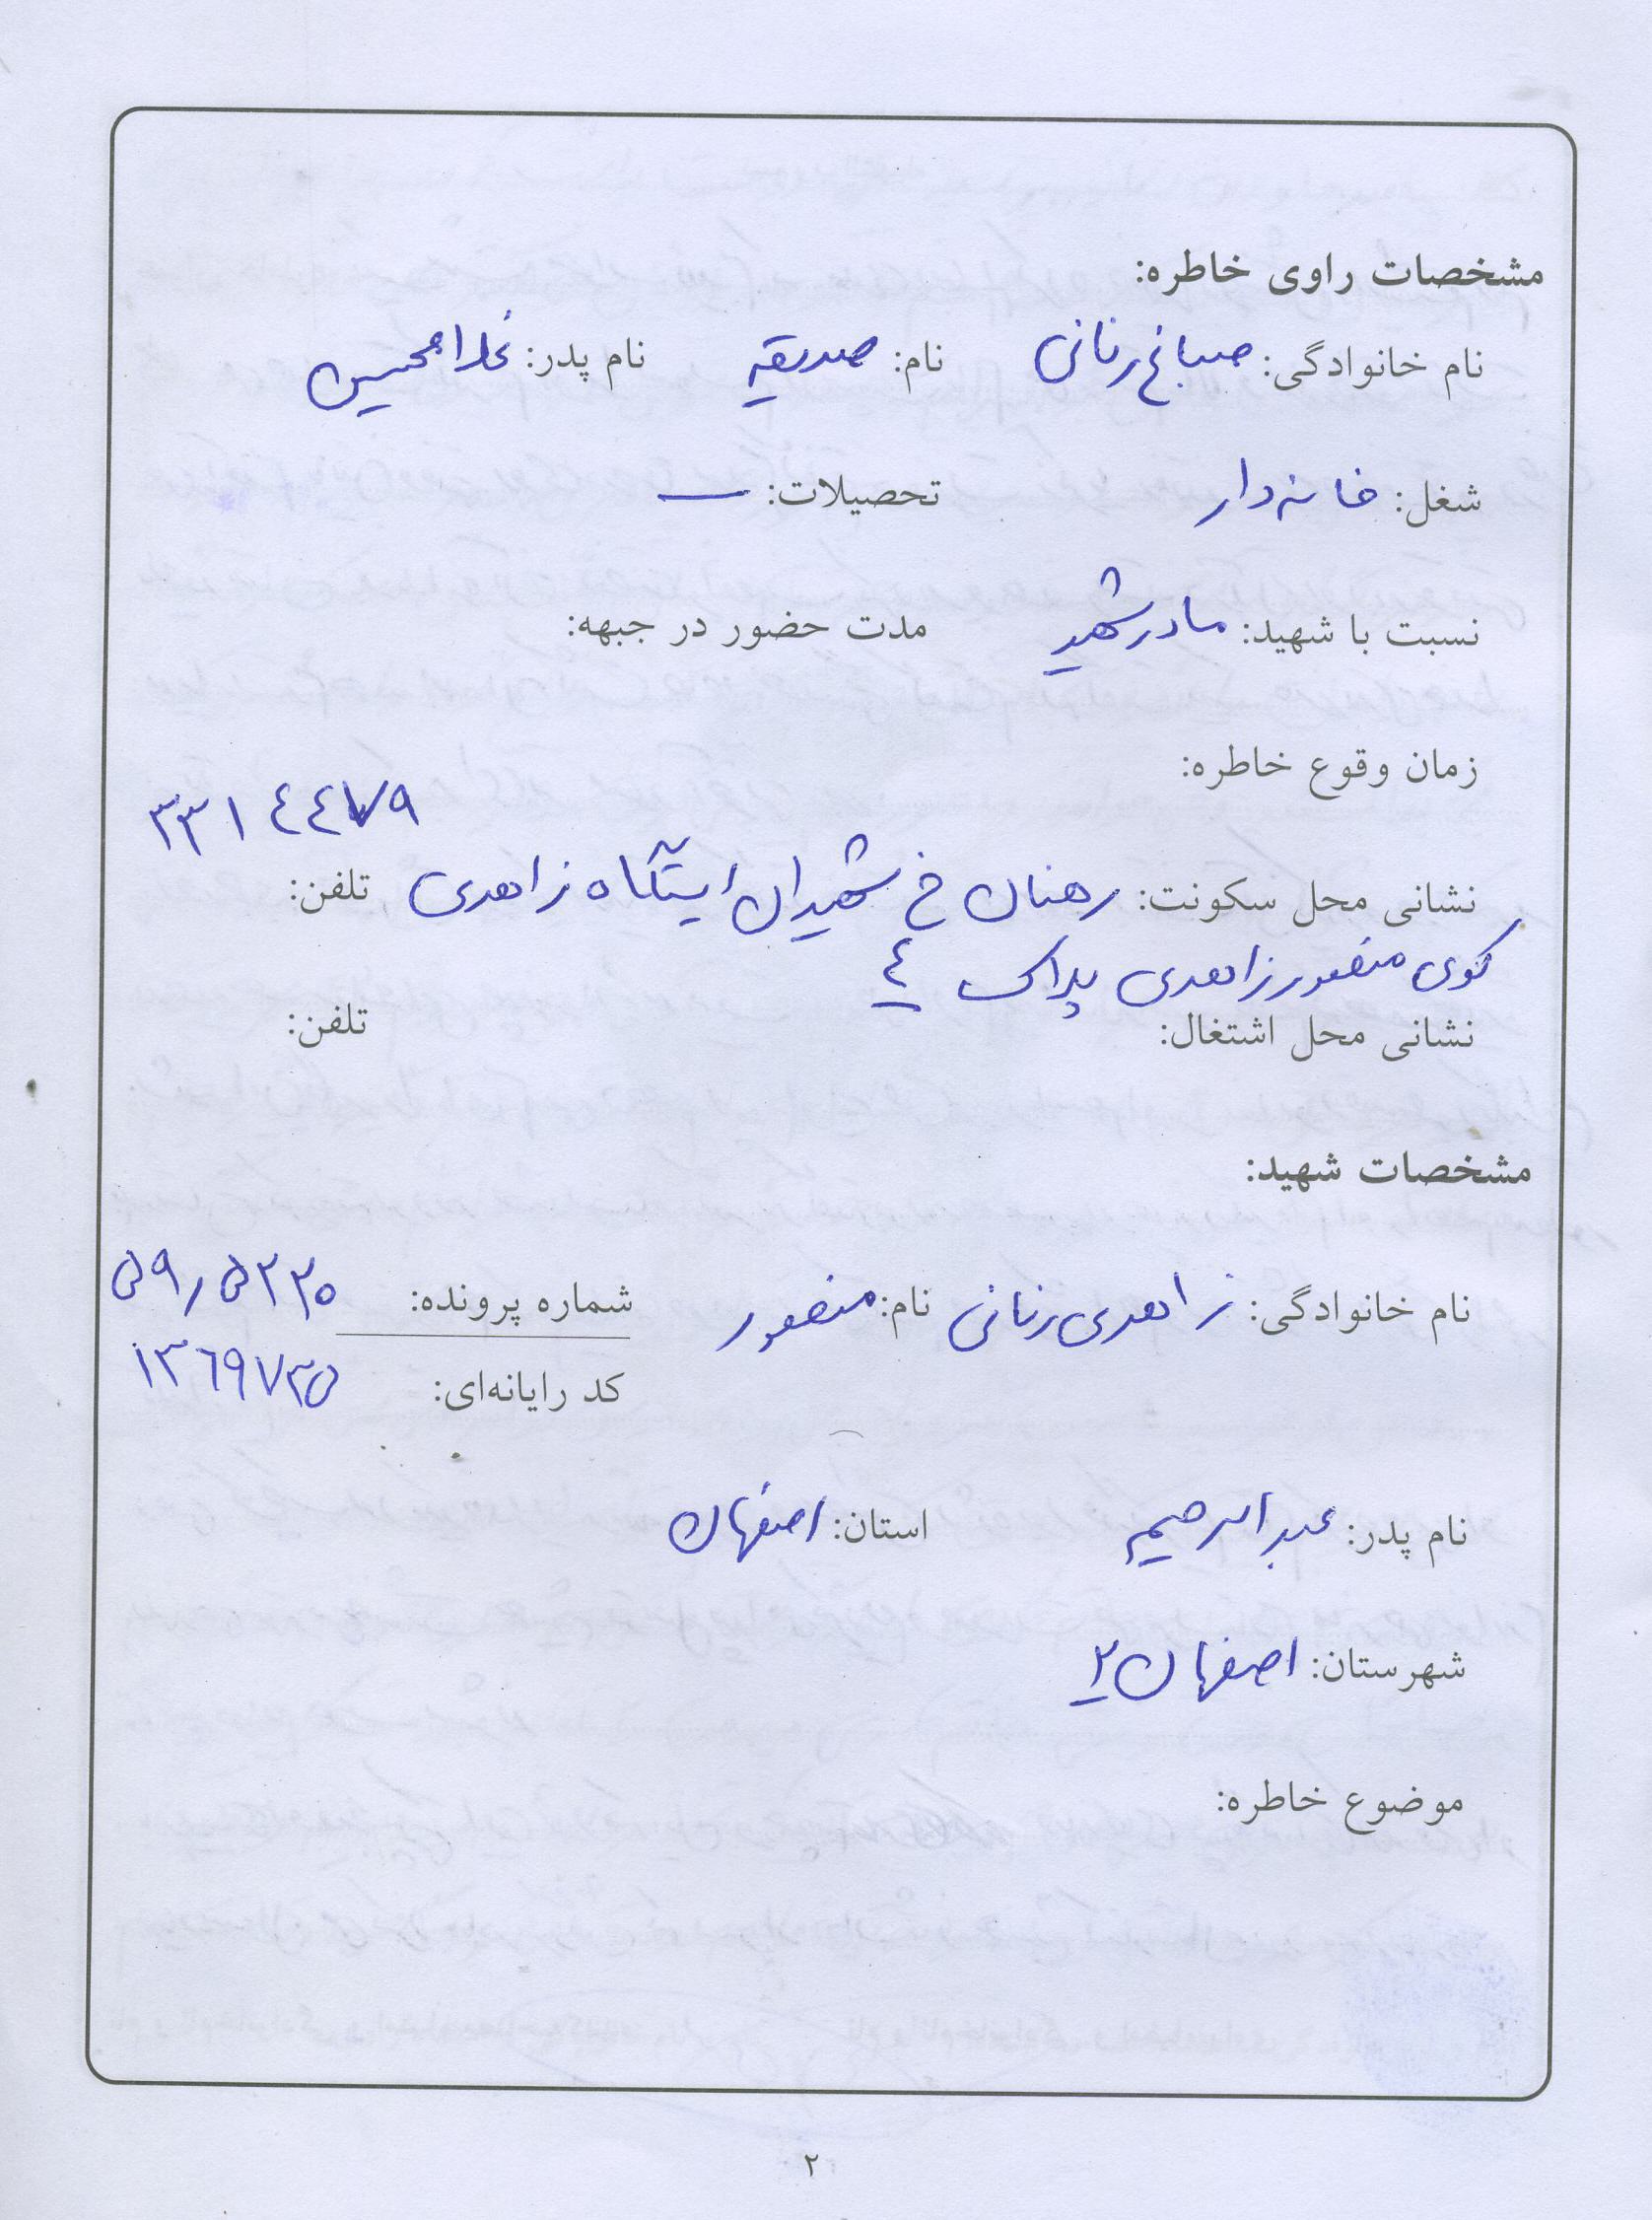 مشخصات راوی خاطره:
نام خانوادگی: صباغ رنانی نام: صدیقه نام پدر: غلامحسین
شغل: خانه دار تحصیلات: ــ
نسبت با شهید: مادر شهید مدت حضور در جبهه:
زمان وقوع خاطره:
۳۳۱٤٤۷۹
نشانی محل سکونت: رهنان خ شهیدان ایستگاه زاهدی تلفن:
کوی منصور زاهدی پلاک ٤
نشانی محل اشتغال: تلفن:
مشخصات شهید:
نام خانوادگی: زاهدی رنانی نام: منصور شماره پرونده: ۵۹٫۵۲۳۰
کد رایانه‌ای: ۱۳۶۹۷۳۵
نام پدر: عبدالرحیم استان: اصفهان
شهرستان: اصفهان ۲
موضوع خاطره:
۲